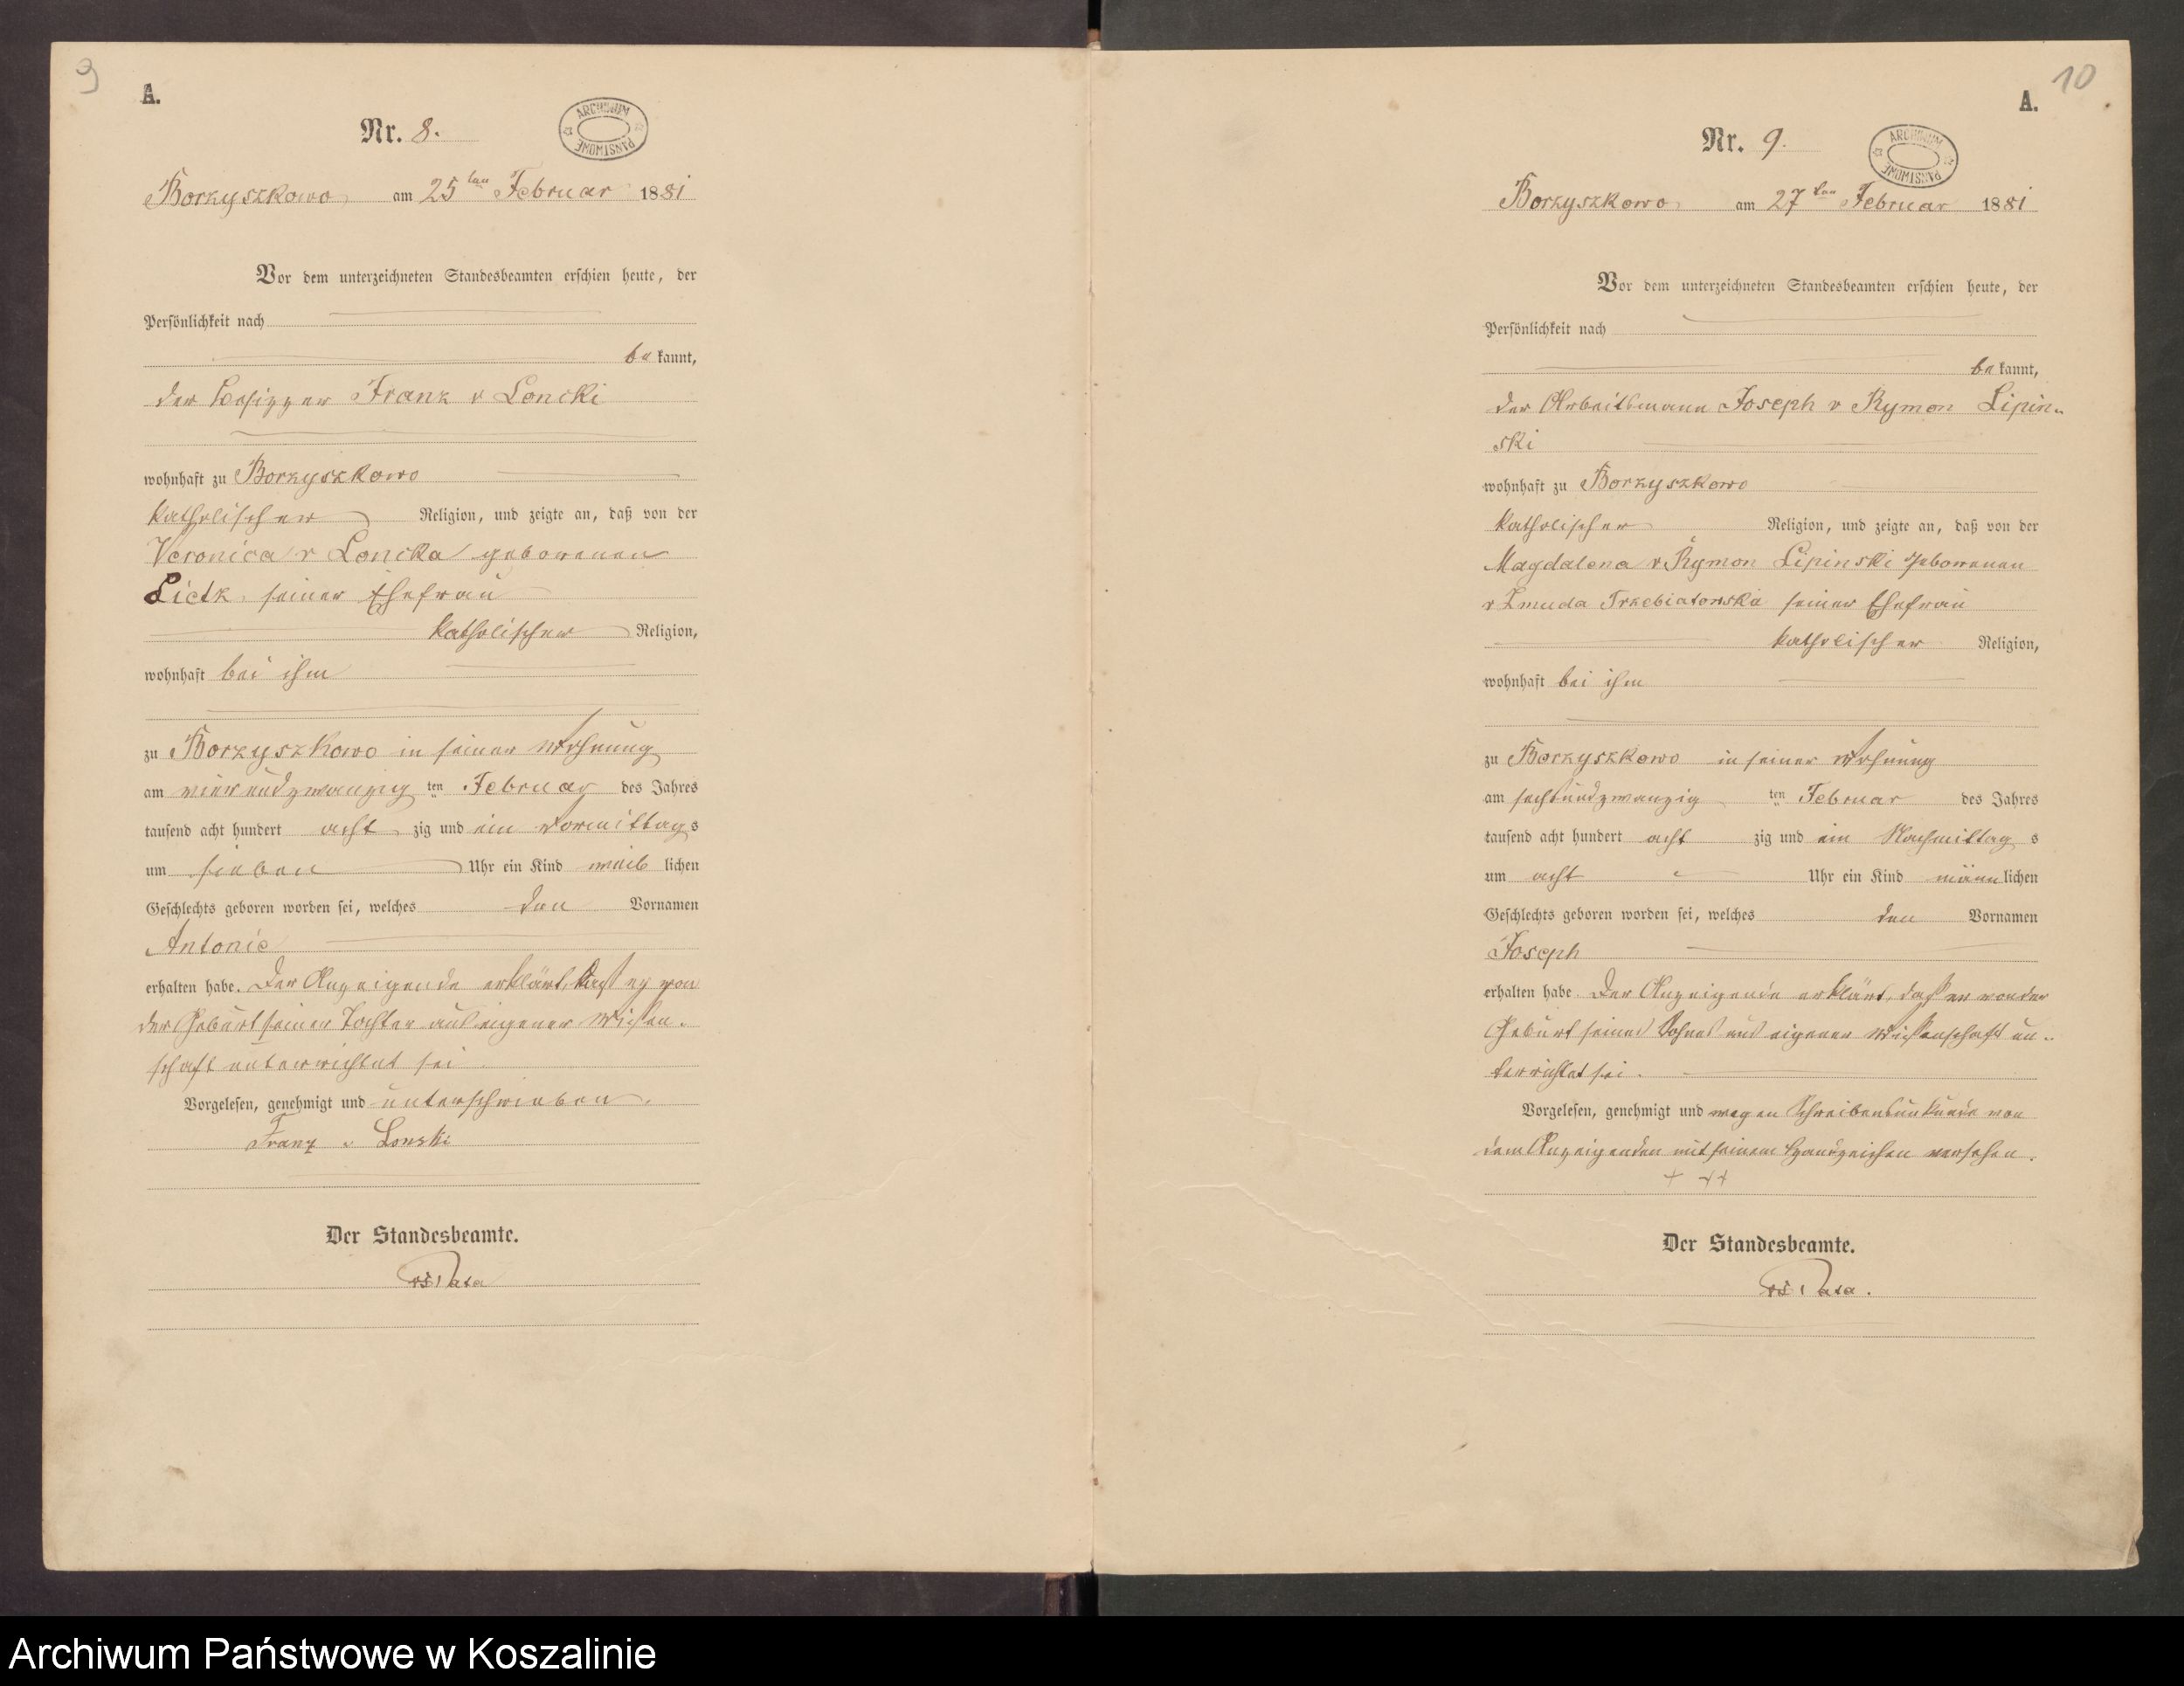 9
A.
Nr. 8.
ARCHIWUM PAŃSTWOWE
Borzyszkowo am 25ten Februar 1881
Vor dem unterzeichneten Standesbeamten erschien heute, der
Persönlichkeit nach
bekannt,
der Besitzer Franz v Loncki
wohnhaft zu Borzyszkowo
katholischer Religion, und zeigte an, daß von der
Veronica v Loncka geborenen
Lietz, seiner Ehefrau
katholischer Religion,
wohnhaft bei ihm
zu Borzyszkowo in seiner Wohnung
am vierundzwanzig ten Februar des Jahres
tausend acht hundert acht zig und ein Vormittags
um sieben Uhr ein Kind weiblichen
Geschlechts geboren worden sei, welches den Vornamen
Antonie
erhalten habe. Der Anzeigende erklärt, daß er von
der Geburt seiner Tochter aus eigener Wissen-
schaft unterrichtet sei.
Vorgelesen, genehmigt und unterschrieben.
Franz v Lonski
Der Standesbeamte.
10
A.
Nr. 9.
ARCHIWUM PAŃSTWOWE
Borzyszkowo am 27ten Februar 1881
Vor dem unterzeichneten Standesbeamten erschien heute, der
Persönlichkeit nach
bekannt,
der Arbeitsmann Joseph v Rymon Lipin-
ski
wohnhaft zu Borzyszkowo
katholischer Religion, und zeigte an, daß von der
Magdalena v Rymon Lipinski geborenen
v Zmuda Trzebiatowska seiner Ehefrau
katholischer Religion,
wohnhaft bei ihm
zu Borzyszkowo in seiner Wohnung
am sechsundzwanzig ten Februar des Jahres
tausend acht hundert acht zig und ein Nachmittag s
um acht Uhr ein Kind männlichen
Geschlechts geboren worden sei, welches den Vornamen
Joseph
erhalten habe. Der Anzeigende erklärt, daß er von der
Geburt seines Sohnes aus eigener Wissenschaft un-
terrichtet sei.
Vorgelesen, genehmigt und wegen Schreibensunkunde von
dem Anzeigenden mit seinem Handzeichen versehen.
+ ++
Der Standesbeamte.
Archiwum Państwowe w Koszalinie